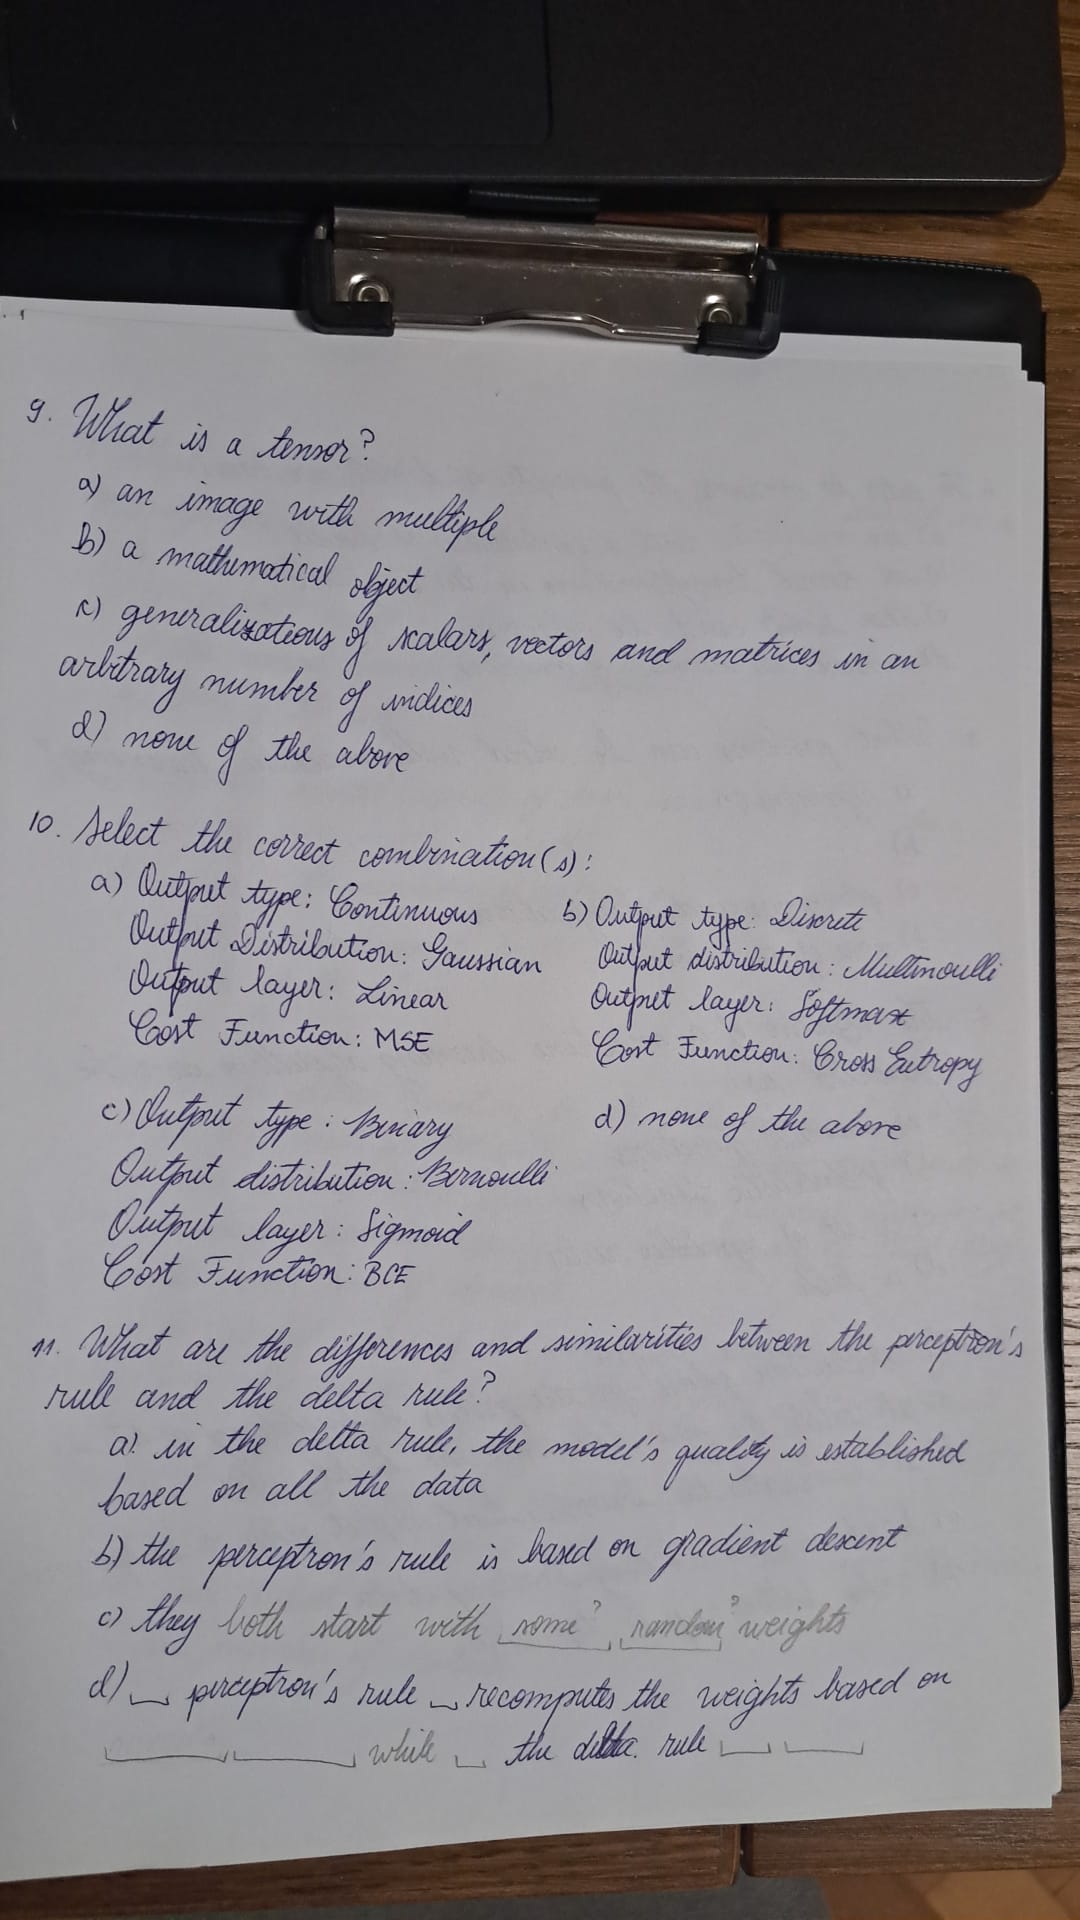 9. What is a tensor?
a) an image with multiple
b) a mathematical object
c) generalizations of scalars, vectors and matrices in an
arbitrary number of indices
d) none of the above
10. Select the correct combination(s):
a) Output type: Continuous
Output Distribution: Gaussian
Output layer: Linear
Cost Function: MSE
b) Output type: Discrete
Output distribution: Multinoulli
Output layer: Softmax
Cost Function: Cross Entropy
c) Output type: Binary
Output distribution: Bernoulli
Output layer: Sigmoid
Cost Function: BCE
d) none of the above
11. What are the differences and similarities between the perceptron's
rule and the delta rule?
a) in the delta rule, the model's quality is established
based on all the data
b) the perceptron's rule is based on gradient descent
c) they both start with some? random? weights
d) _ perceptron's rule _ recomputes the weights based on
_ _ while _ the delta rule _ _